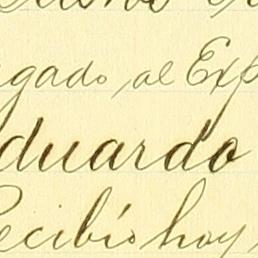 gado, al Exp
duardo
Recibio hoy